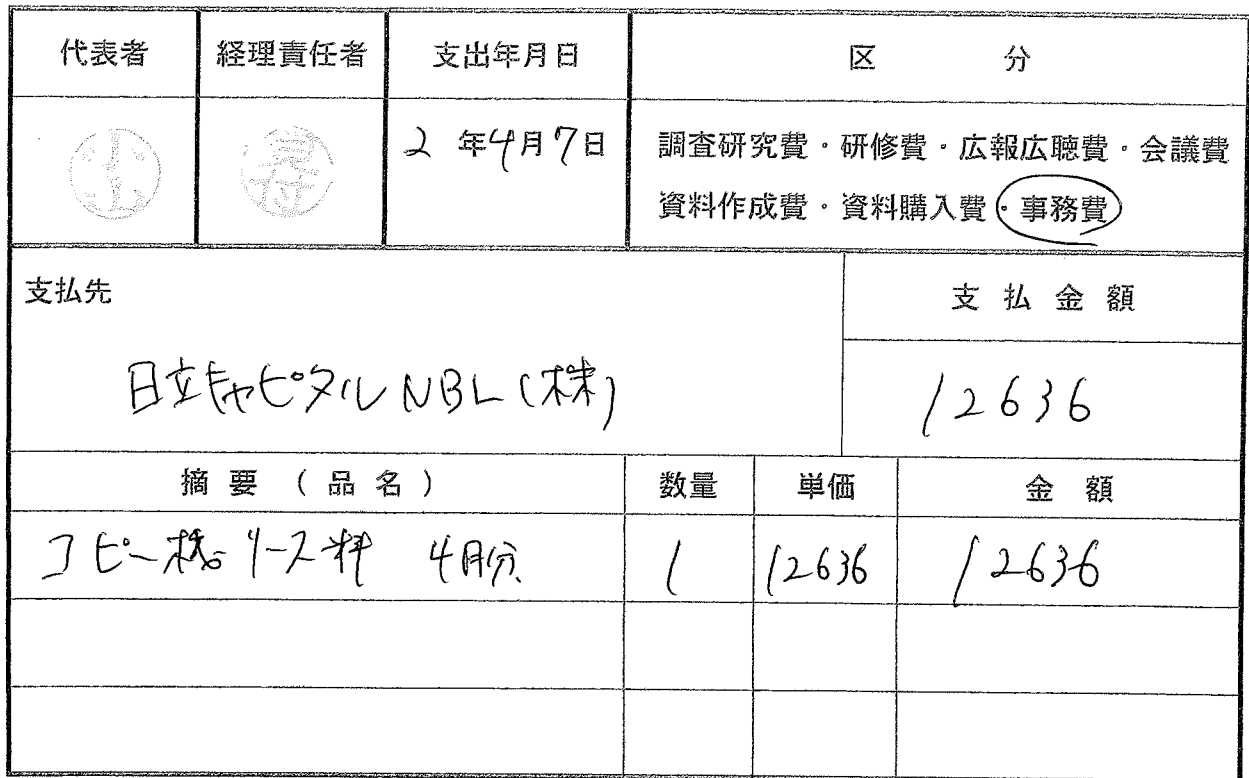 代表者 経理責任者 支出年月日 区 分
2 年4月7日
調査研究費・研修費・広報広聴費・会議費
資料作成費・資料購入費・事務費
支払先 支 払 金 額
日立キャピタルNBL(株) 12636
摘 要 ( 品 名 ) 数量 単価 金 額
コピー機リース料 4月分 1 12636 12636